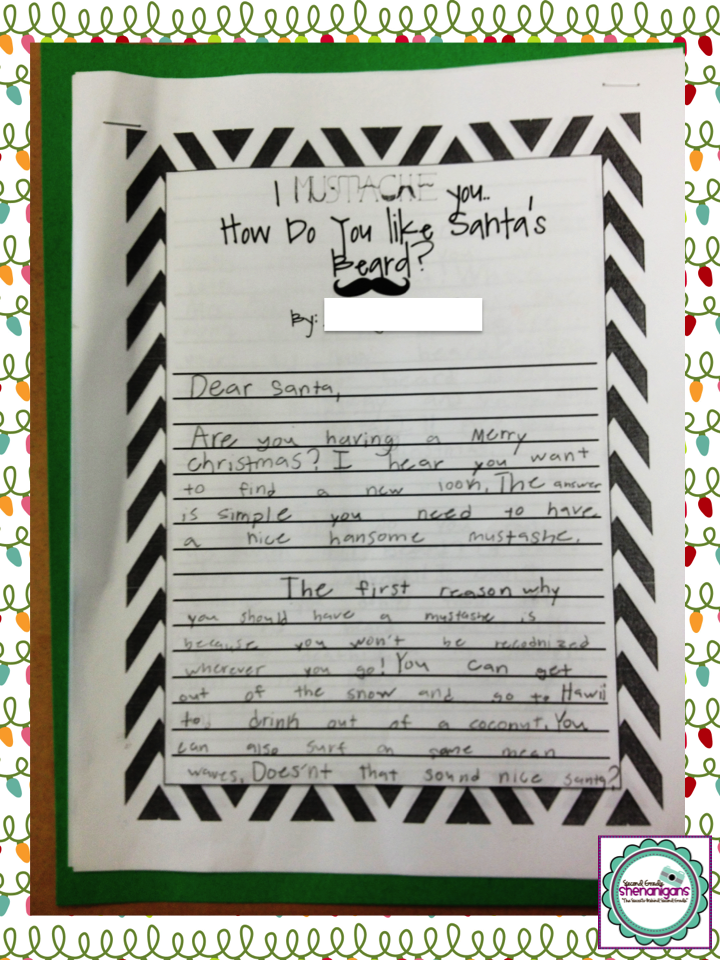 I MUSTACHE you..
How Do You like Santa's
Beard?
By:
Dear Santa,
Are you having a Merry
christmas? I hear you want
to find a new look. The answer
is simple you need to have
a nice hansome mustashe.
The first reason why
you should have a mustashe is
because you won't be recodnized
wherever you go! You can get
out of the snow and go to Hawii
to drink out of a coconut. You
can also surf on some mean
waves. Does'nt that sound nice santa?
Second Grade
Shenanigans
"The Secrets Behind Second Grade"